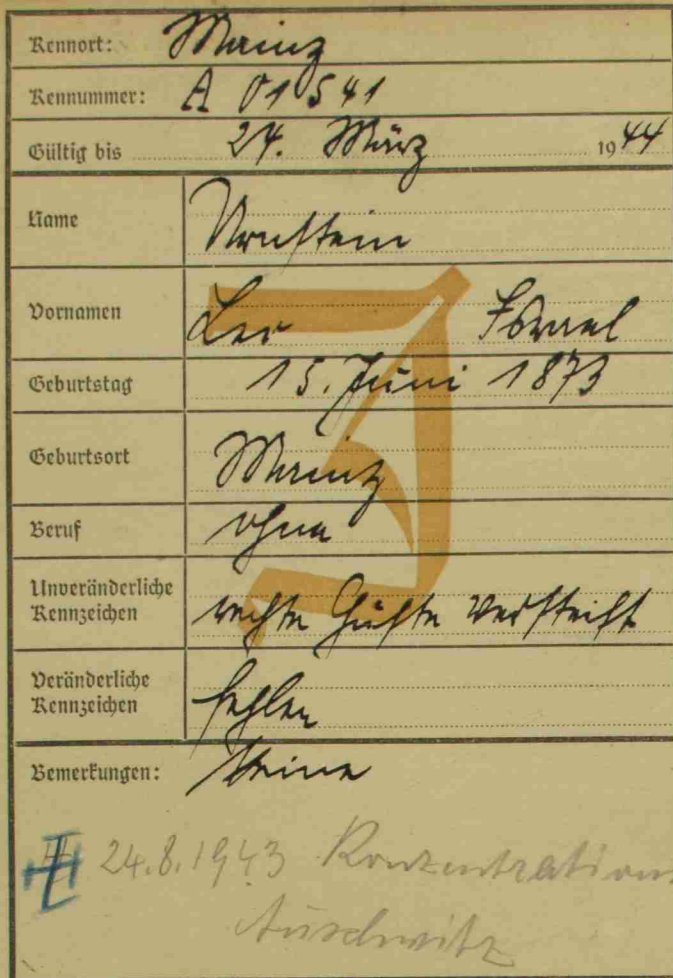 Kennort: Mainz
Kennummer: A 01541
Gültig bis 24. März 1944
Name Arnstein
Vornamen Leo Israel
Geburtstag 15. Juni 1873
Geburtsort Mainz
Beruf ohne
Unveränderliche
Kennzeichen rechte Hüfte versteift
Veränderliche
Kennzeichen fehlen
Bemerkungen: Keine
24.8.1943 Konzentration
Auschwitz
J